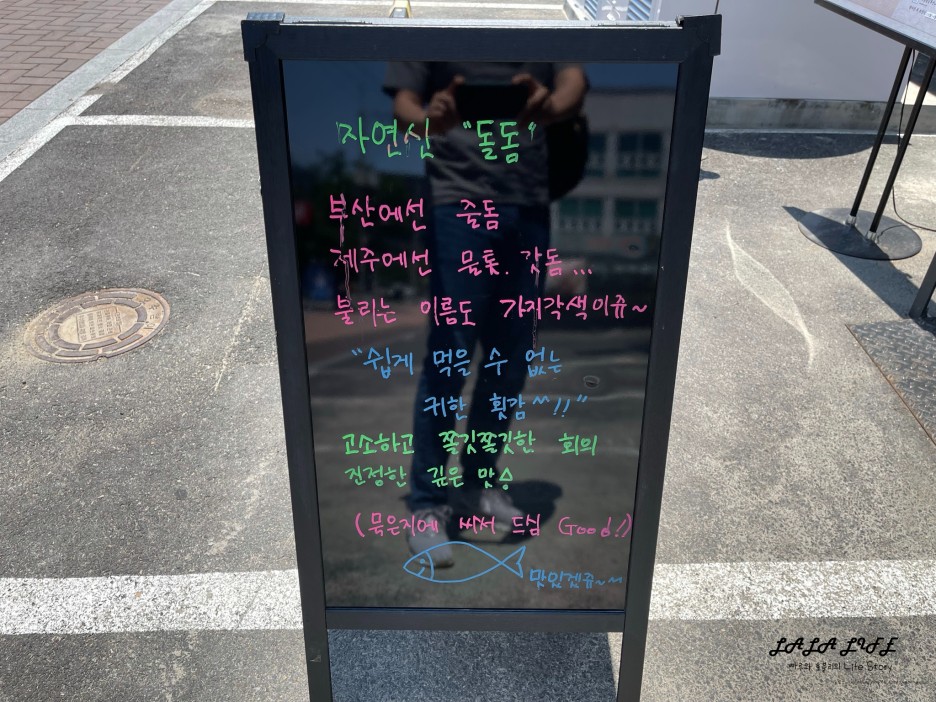 자연산 "돌돔"
부산에선 줄돔
제주에선 뭍톳. 갓돔...
불리는 이름도 가지각색이쥬~
"쉽게 먹을 수 없는
귀한 횟감^^!!"
고소하고 쫄깃쫄깃한 회의
진정한 깊은 맛슝
(묵은지에 싸서 드심 Good!)
맛있겠쥬~~
LALA LIFE
Life Story